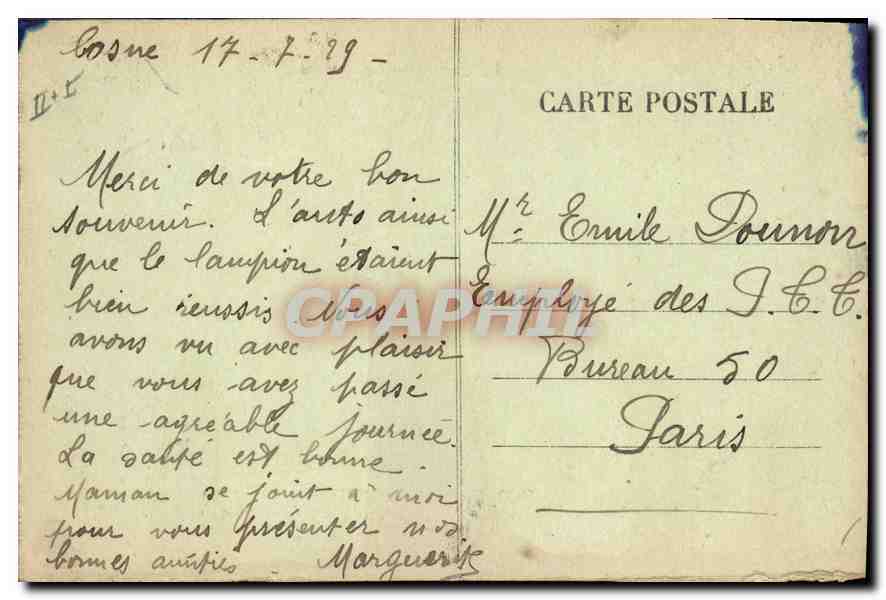 Cosne 17-7-29-
II + I
Merci de votre bon
souvenir. L'auto ainsi
que le lampion étaient
bien reussis. Nous
avons vu avec plaisir
que vous avez passé
une agréable journée.
La santé est bonne.
Maman se joint à moi
pour vous présenter nos
bonnes amitiés. Marguerite
CARTE POSTALE
Mr Emile
Employé des P.T.T.
Bureau 50
Paris
CPAPHIL